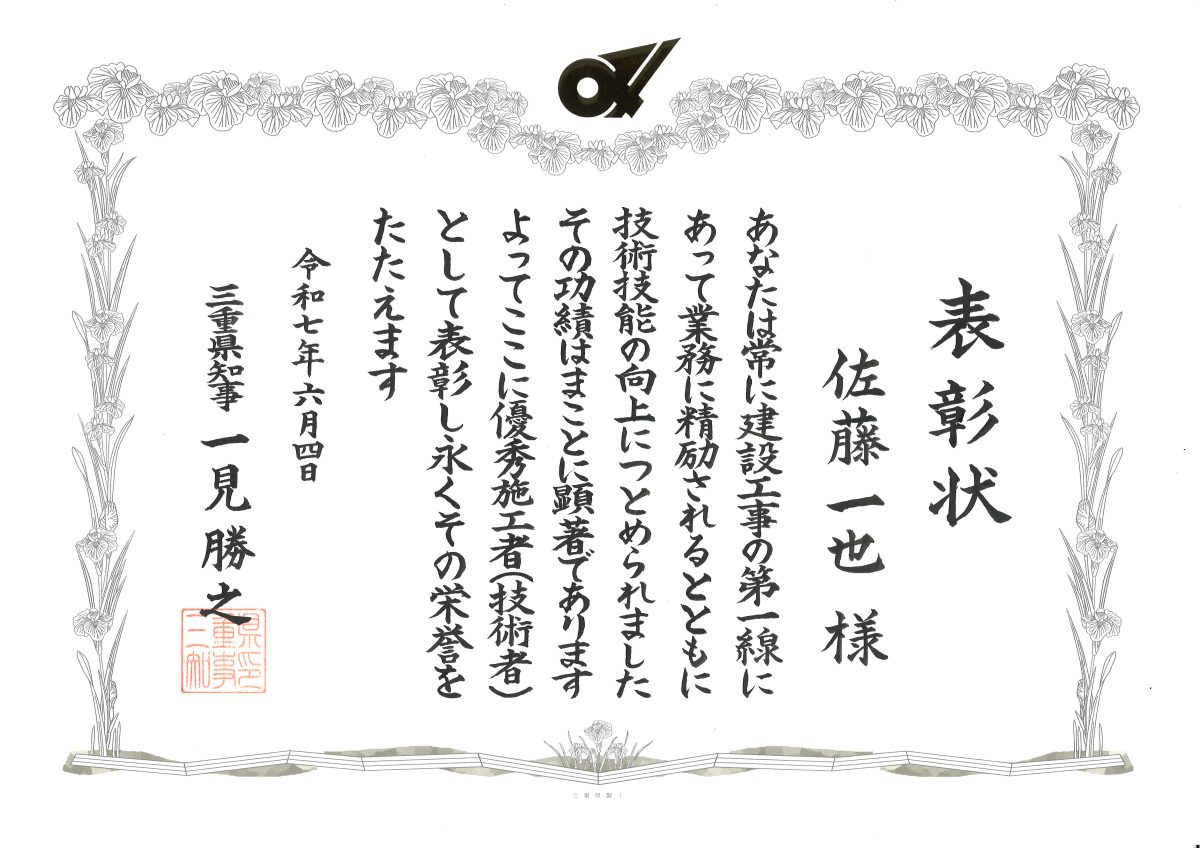 表彰状
佐藤一也 様
あなたは常に建設工事の第一線に
あって業務に精励されるとともに
技術技能の向上につとめられました
その功績はまことに顕著であります
よってここに優秀施工者(技術者)
として表彰し永くその栄誉を
たたえます
令和七年六月四日
三重県知事 一見勝之